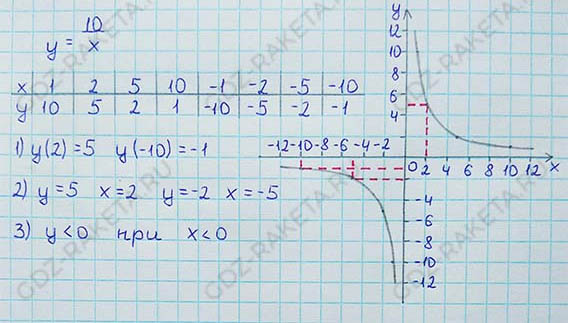 y = 10/x
x 1 2 5 10 -1 -2 -5 -10
y 10 5 2 1 -10 -5 -2 -1
1) y(2)=5 y(-10)=-1
2) y=5 x=2 y=-2 x=-5
3) y<0 при x<0
y
12
10
8
6
4
-12 -10 -8 -6 -4 -2
0 2 4 6 8 10 12 x
-4
-6
-8
-10
-12
GDZ-RAKETA.RU
GDZ-RAKETA.RU
GDZ-RAKETA.RU
GDZ-RAKETA.RU